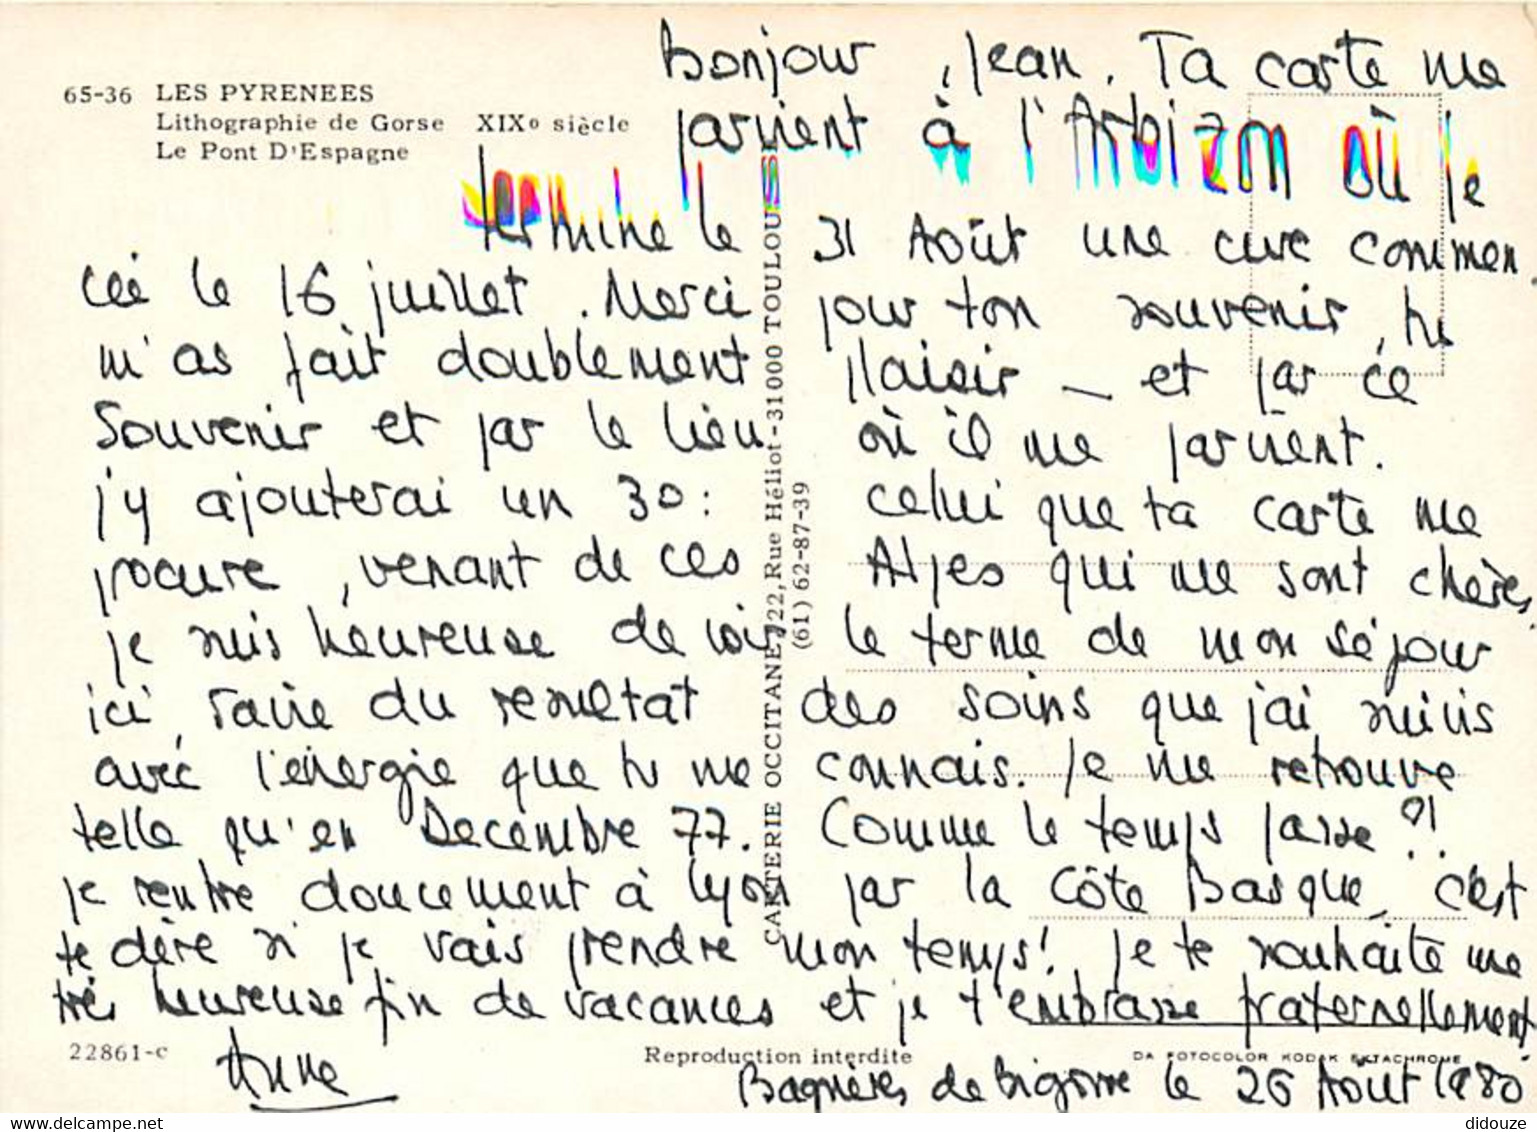 Bonjour, Jean. Ta carte me
parvient à l'Arbizon où je
65-36 LES PYRENEES
Lithographie de Gorse XIXe siècle
Le Pont D'Espagne
termine le 31 Août une cure commen
cée le 16 juillet. Merci pour ton souvenir, tu
m'as fait doublement plaisir _ et par ce
souvenir et par le lieu où il me parvient.
j'y ajouterai un 3o: celui que ta carte me
procure, venant de ces Alpes qui me sont chères,
je suis heureuse de voir le terme de mon séjour
ici, ravie du resultat des soins que j'ai suivis
avec l'énergie que tu me connais. Je me retrouve
telle qu'en Decembre 77. Comme le temps passe?!
je rentre doucement à Lyon par la Côte Basque, c'est
te dire si je vais prendre mon temps! Je te souhaite une
très heureuse fin de vacances et je t'embrasse fraternellement
Anne
Bagnères de Bigorre le 26 Août 1980
CARTERIE OCCITANE, 22, Rue Héliot - 31000 TOULOUSE
(61) 62-87-39
22861-c
Reproduction interdite
DA FOTOCOLOR KODAK EKTACHROME
didouze